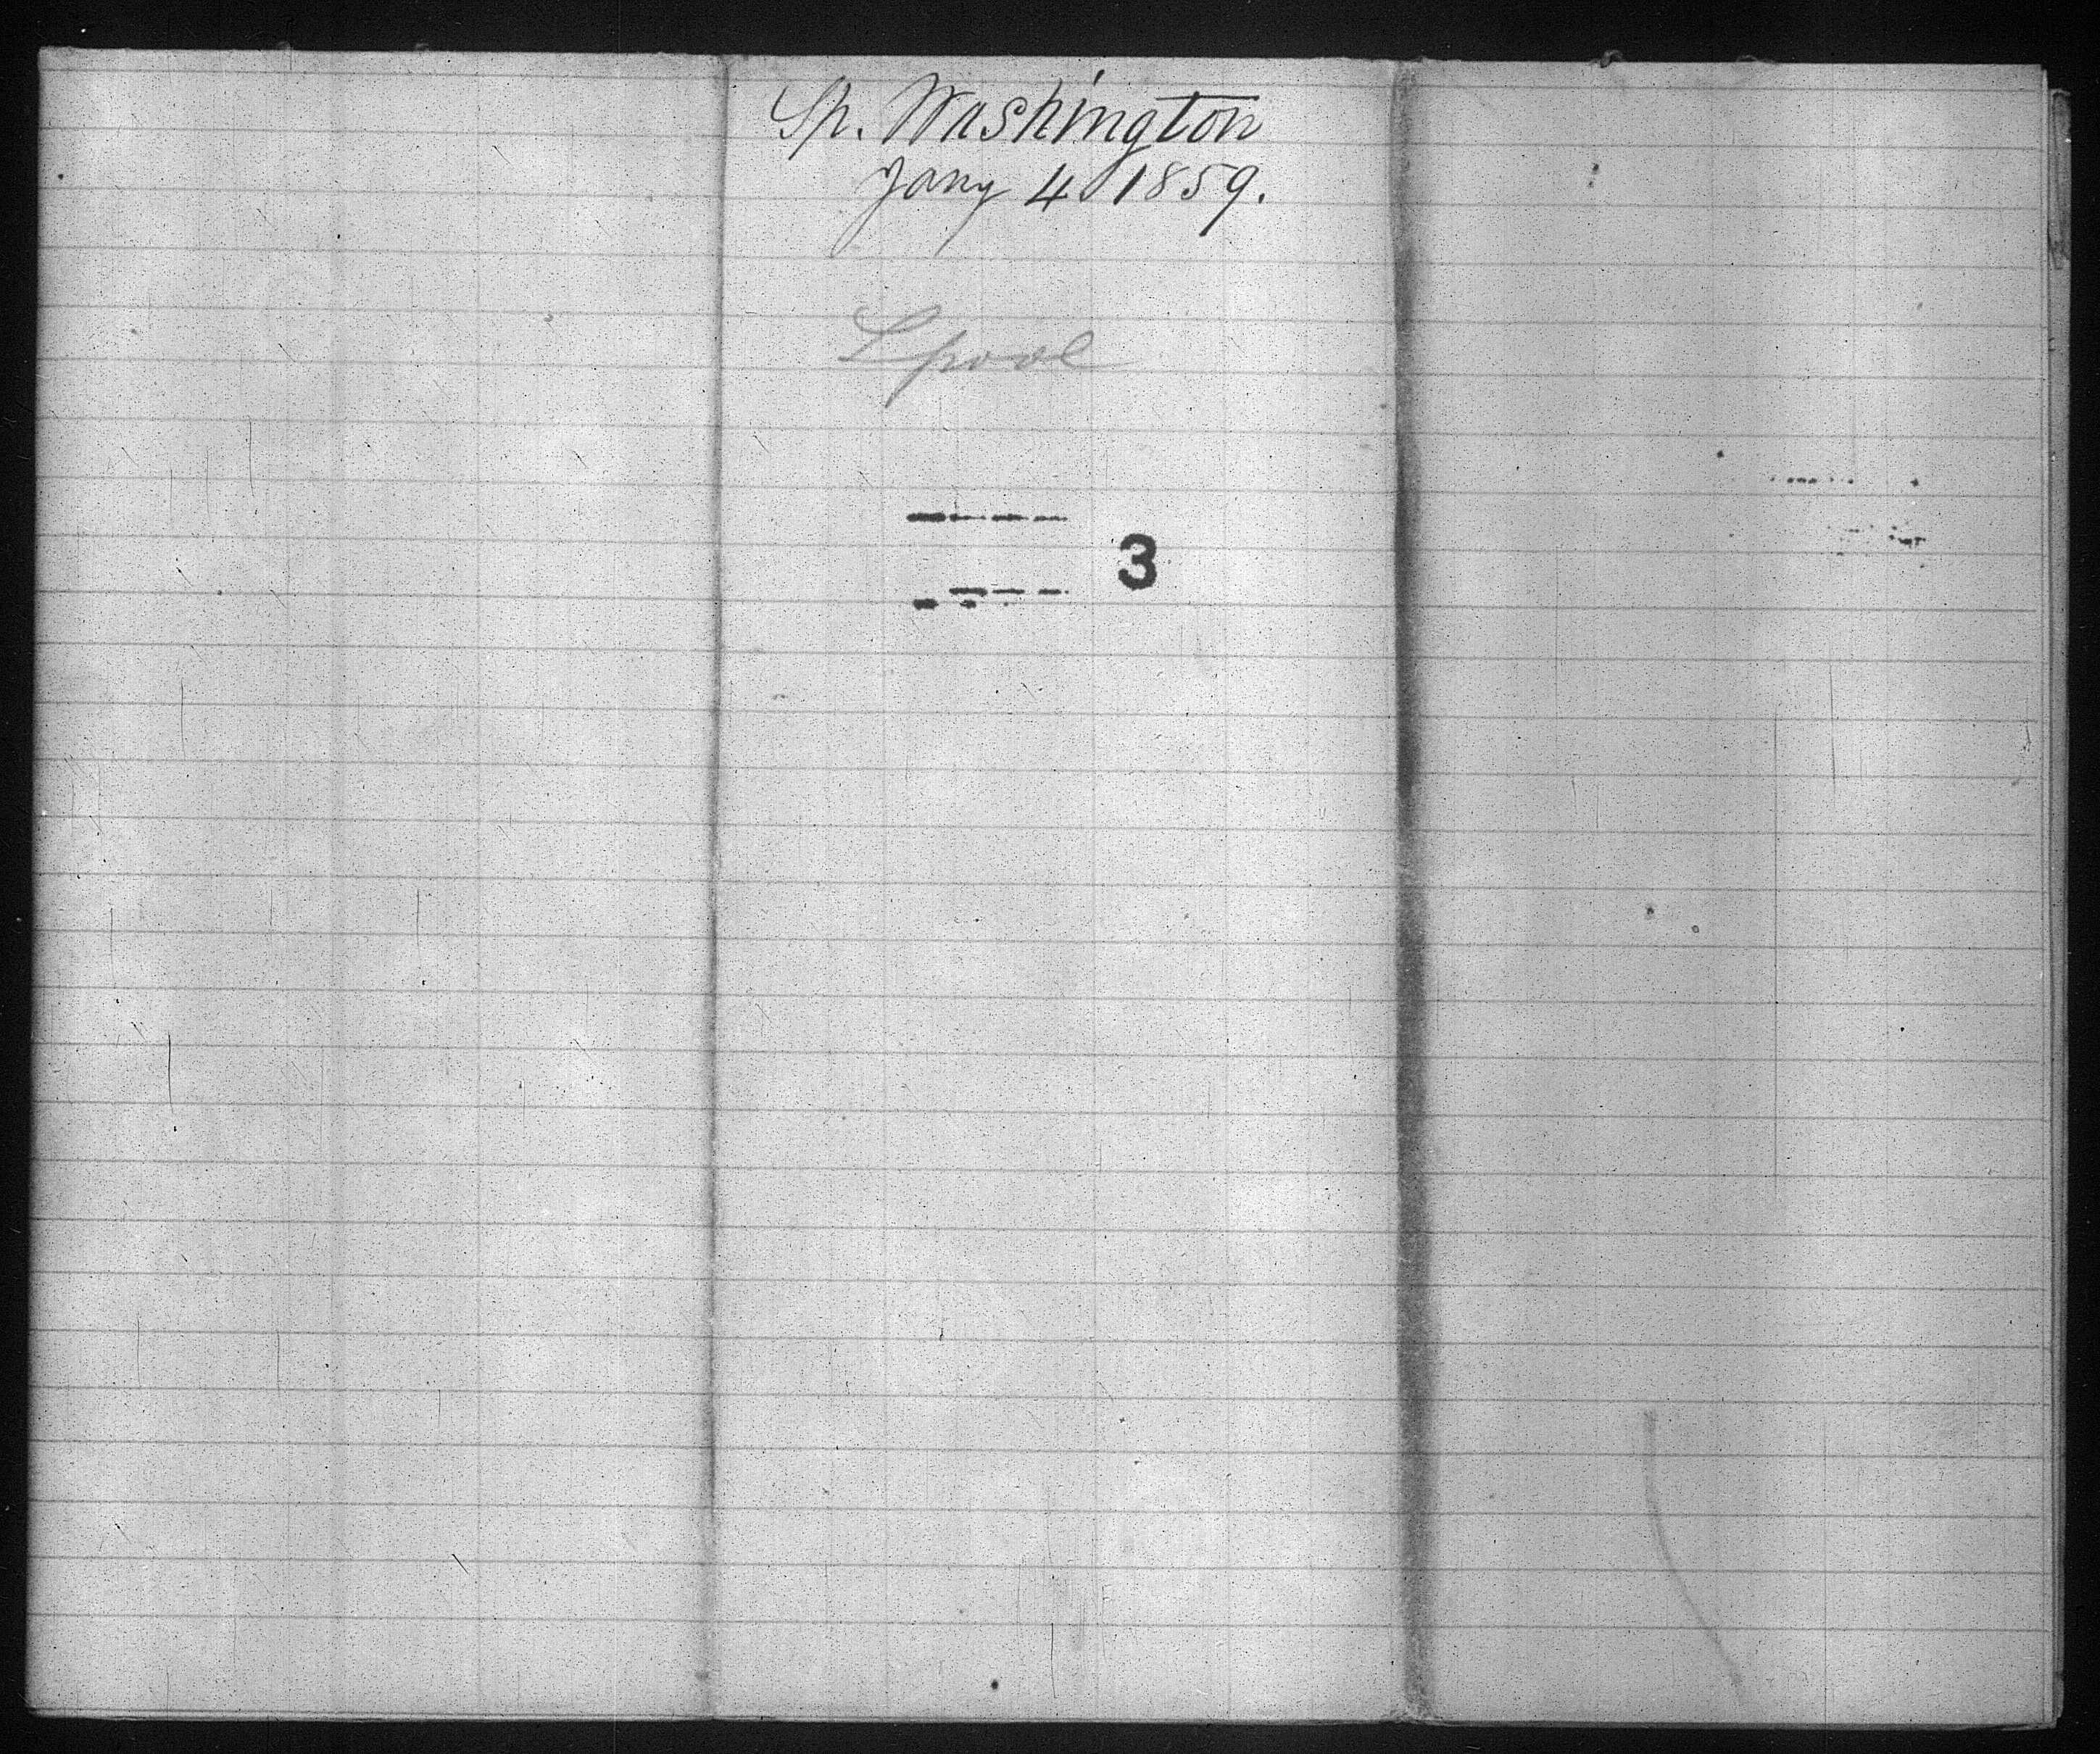 Sp. Washington
Jany 4 1859.
Lpool
3